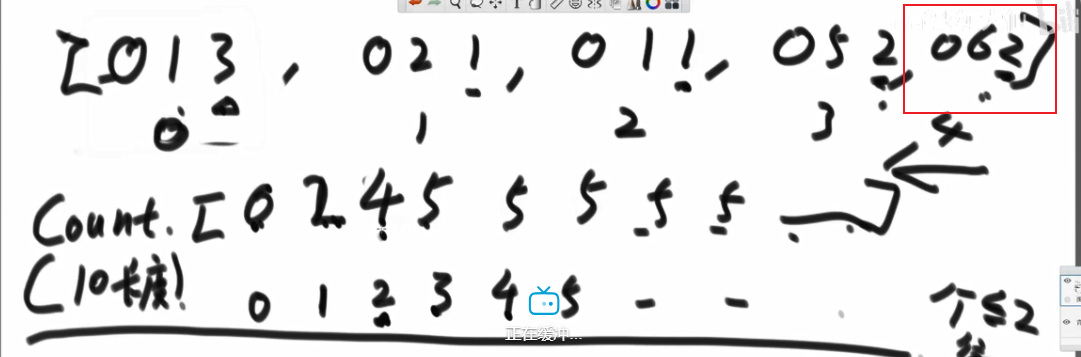 [013, 021, 011, 052, 062]
0 1 2 3 4
Count. [0 2 4 5 5 5 5 5 ]
(10长度)
0 1 2 3 4 5 - -
正在缓冲...
个≤2